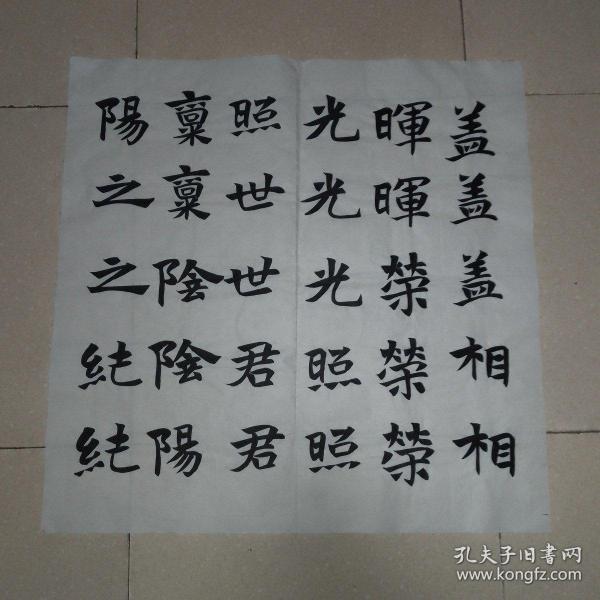 盖盖盖相相
暉暉榮榮榮
光光光照照
照世世君君
稟稟陰陰陽
陽之之純純
孔夫子旧書网
www.kongfz.com